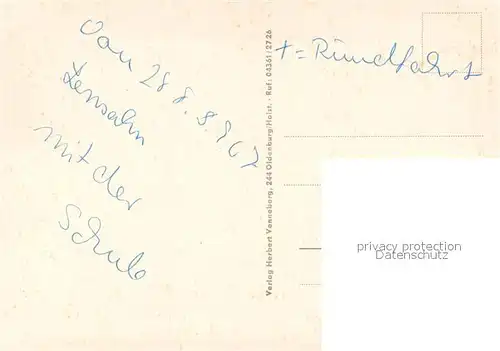 Vom 28.8.967
Lensahn
mit der
Schule
+ = Rundfahrt
Verlag Herbert Vonneberg, 244 Oldenburg/Holst. - Ruf: 04361/2726
privacy protection
Datenschutz